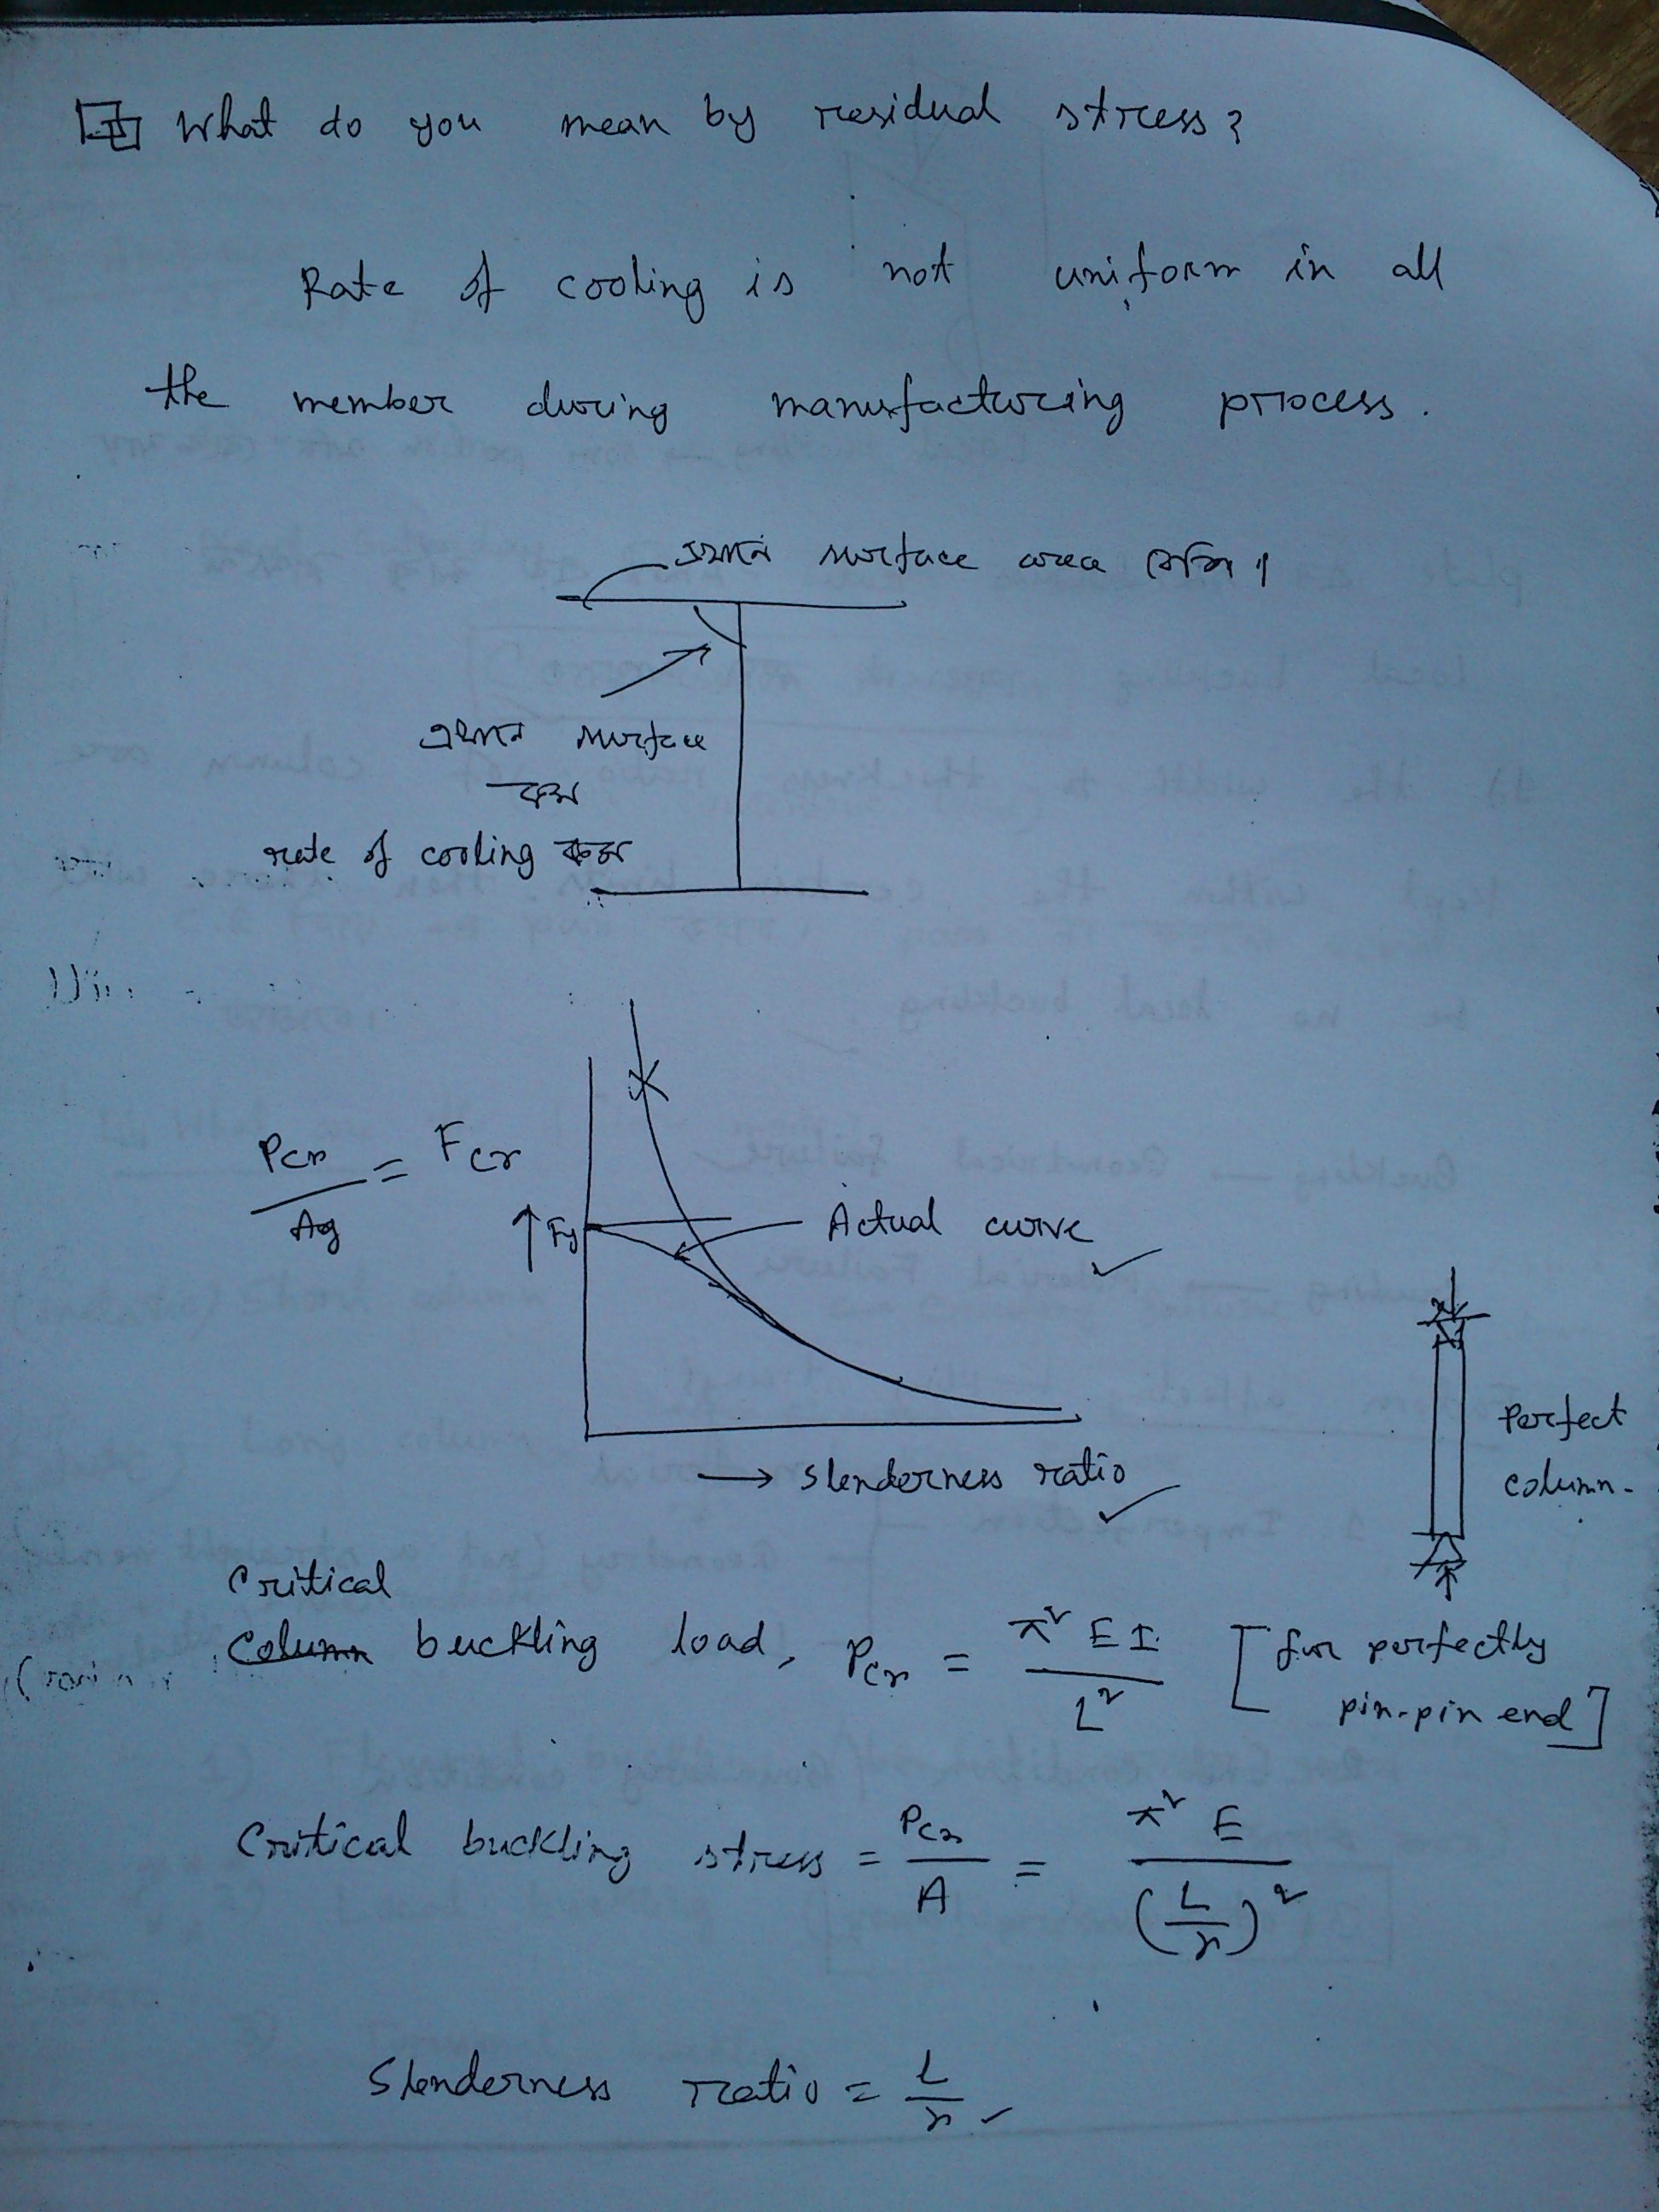 What do you mean by residual stress?
Rate of cooling is not uniform in all
the member during manufacturing process.
এখানে surface area বেশি।
এখানে surface
কম
rate of cooling কম
Pcr/Ag = Fcr
↑ Fy
Actual curve
→ slenderness ratio
Perfect
column.
Critical
Column buckling load, Pcr = π² E I / L² [for perfectly
pin-pin end]
Critical buckling stress = Pcr/A = π² E / (L/r)²
Slenderness ratio = L/r